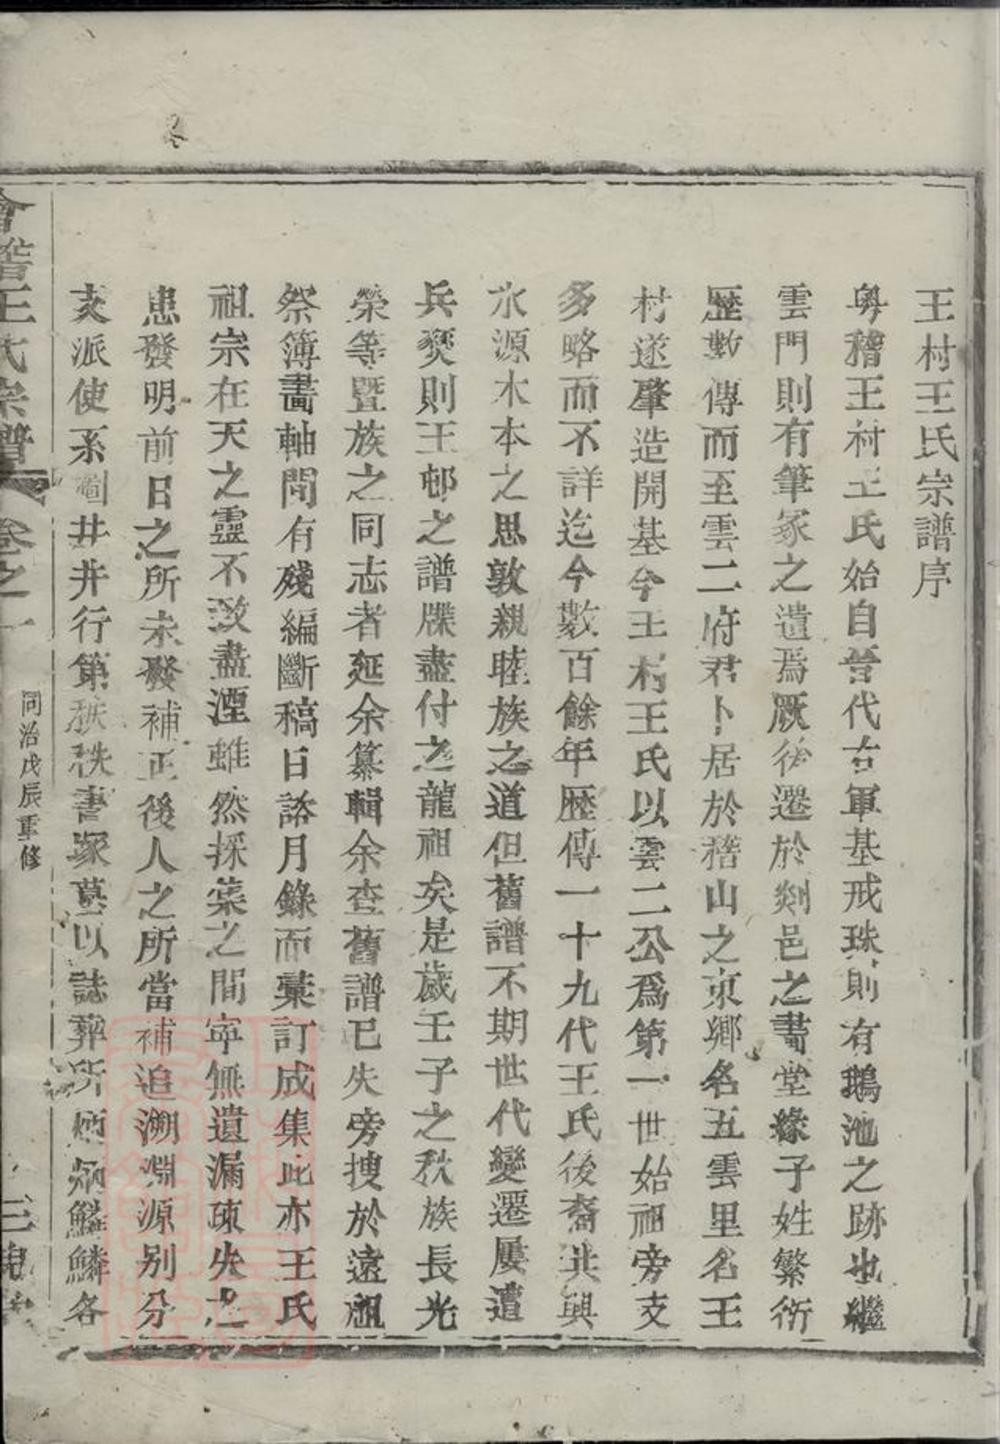 王村王氏宗譜序
粵稽王村王氏始自晉代右軍基戒珠則有鵝池之跡也繼
雲門則有筆冢之遺爲厥後遷於剡邑之書堂緣子姓繁衍
歷數傳而至雲二府君卜居於稽山之東鄉名五雲里名王
村遂肇造開基今王村王氏以雲二公爲第一世始祖旁支
多略而不詳迄今數百餘年歷傳一十九代王氏後裔共興
水源木本之思敦親睦族之道但舊譜不期世代變遷屢遭
兵燹則王邨之譜牒盡付之龍祖矣是歲壬子之秋族長光
榮等暨族之同志者延余纂輯余查舊譜已失旁搜於遠祖
祭簿畫軸間有殘編斷稿日諮月錄而彙訂成集此亦王氏
祖宗在天之靈不致盡湮雖然採葉之間寧無遺漏疎失之
患發明前日之所未發補正後人之所當補追溯淵源别分
支派使系圖井井行第秩秩書塚墓以誌葬所炳炳鱗鱗各
會稽王氏宗譜 卷之一 同治戊辰重修 三